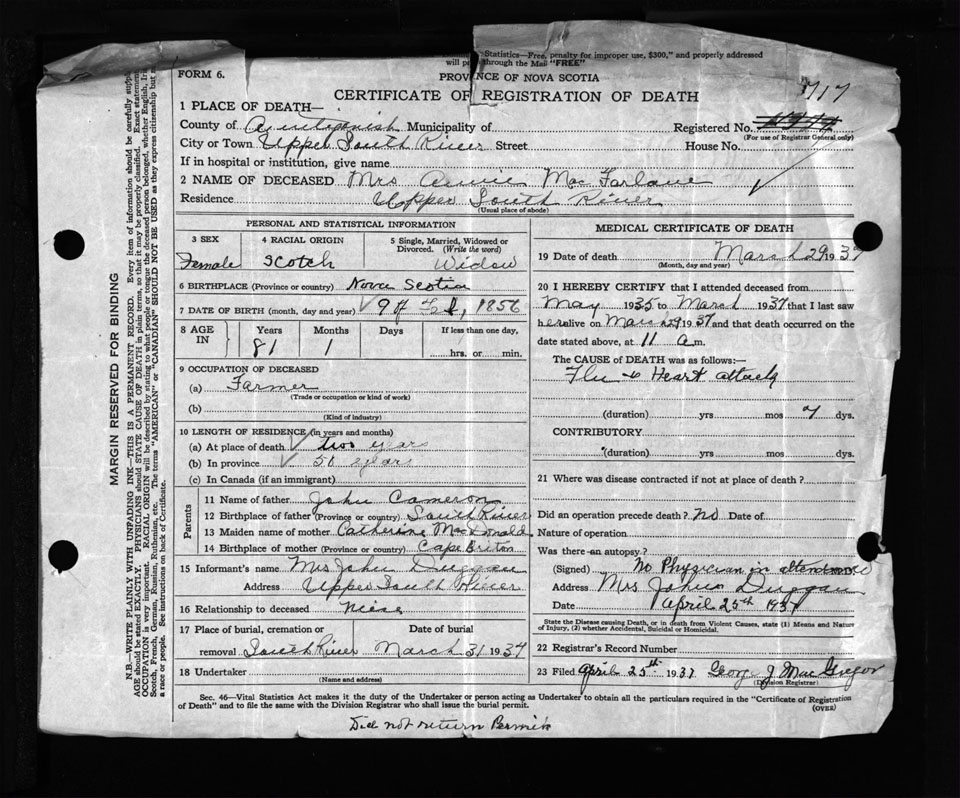 Statistics—Free, penalty for improper use, $300," and properly addressed
will pass through the Mail "FREE"
FORM 6.
PROVINCE OF NOVA SCOTIA
CERTIFICATE OF REGISTRATION OF DEATH
717
1 PLACE OF DEATH—
County of Antigonish Municipality of
Registered No.
(For use of Registrar General only)
City or Town Upper South River Street House No.
If in hospital or institution, give name
2 NAME OF DECEASED Mrs Annie MacFarlane
Residence Upper South River
(Usual place of abode)
PERSONAL AND STATISTICAL INFORMATION
3 SEX 4 RACIAL ORIGIN 5 Single, Married, Widowed or Divorced. (Write the word)
Female Scotch Widow
6 BIRTHPLACE (Province or country) Nova Scotia
7 DATE OF BIRTH (month, day and year) 1856
8 AGE IN Years Months Days If less than one day,
81 1 hrs. or min.
9 OCCUPATION OF DECEASED
(a) Farmer
(Trade or occupation or kind of work)
(b)
(Kind of industry)
10 LENGTH OF RESIDENCE (in years and months)
(a) At place of death two years
(b) In province 50 years
(c) In Canada (if an immigrant)
Parents
11 Name of father John Cameron
12 Birthplace of father (Province or country) South River
13 Maiden name of mother Catherine MacDonald
14 Birthplace of mother (Province or country) Cape Briton
15 Informant's name Mrs John Duggan
Address Upper South River
16 Relationship to deceased niese
17 Place of burial, cremation or Date of burial
removal South River March 31 1937
18 Undertaker
(Name and address)
MEDICAL CERTIFICATE OF DEATH
19 Date of death March 29 1937
(Month, day and year)
20 I HEREBY CERTIFY that I attended deceased from
May 1935 to March 1937 that I last saw
her alive on Mar 29 1937 and that death occurred on the
date stated above, at 11 a.m.
The CAUSE of DEATH was as follows:—
Flu & Heart attack
(duration) yrs mos 7 dys.
CONTRIBUTORY
(duration) yrs mos dys.
21 Where was disease contracted if not at place of death?
Did an operation precede death? no Date of
Nature of operation
Was there an autopsy?
(Signed) No Physician in attendance
Address Mrs John Duggan
Date April 25th 1937
State the Disease causing Death, or in death from Violent Causes, state (1) Means and Nature
of Injury, (2) whether Accidental, Suicidal or Homicidal.
22 Registrar's Record Number
23 Filed April 25th 1937 George J MacGregor
(Division Registrar)
Sec. 46—Vital Statistics Act makes it the duty of the Undertaker or person acting as Undertaker to obtain all the particulars required in the "Certificate of Registration
of Death" and to file the same with the Division Registrar who shall issue the burial permit.
(OVER)
Did not return Permit
MARGIN RESERVED FOR BINDING
N.B.—WRITE PLAINLY WITH UNFADING INK—THIS IS A PERMANENT RECORD. Every item of information should be carefully supp
AGE should be stated EXACTLY. PHYSICIANS should STATE CAUSE OF DEATH in plain terms, so that it may be properly classified. Exact statement
OCCUPATION is very important. RACIAL ORIGIN will be described by stating to what people or tongue the deceased person belonged, whether English, Ir
Scotch, French, German, Russian, Ruthenian, etc. The terms "AMERICAN" or "CANADIAN" SHOULD NOT BE USED as they express citizenship but
a race or people. See instructions on back of Certificate.